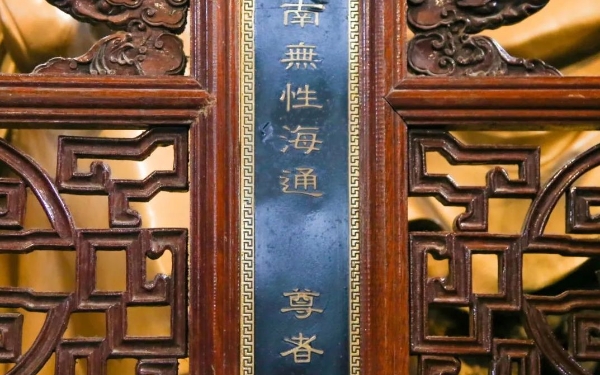 南無性海通 尊者